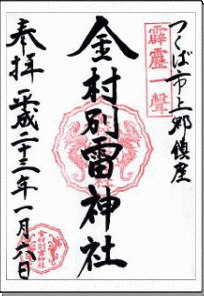 つくば市上郷鎮座
霹靂一声
金村別雷神社
奉拝 平成二十三年一月六日